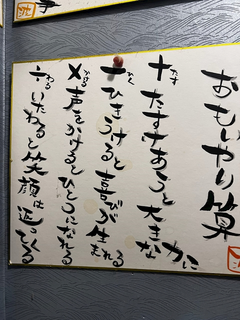 おもいやり算
＋たすけあうと大きな力に
－ひきうけると喜びが生まれる
×声をかけるとひとつになれる
÷いたわると笑顔は返ってくる